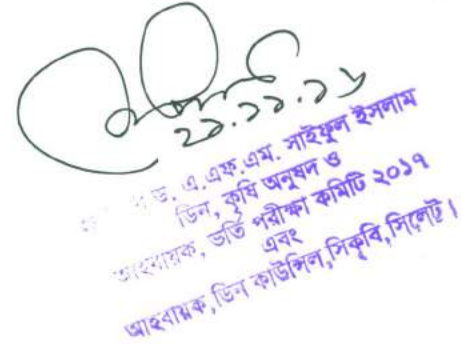 ২১.১১.১৬
ড. এ.এফ.এম. সাইফুল ইসলাম
ডিন, কৃষি অনুষদ ও
আহবায়ক, ভর্তি পরীক্ষা কমিটি ২০১৭
এবং
আহবায়ক, ডিন কাউন্সিল,সিকৃবি,সিলেট।